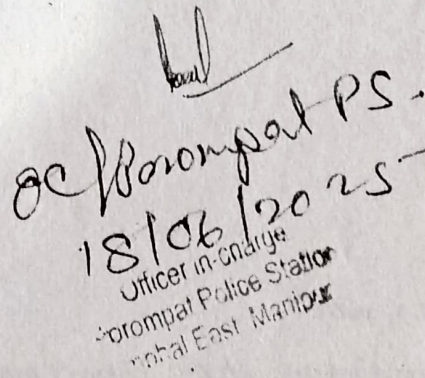 OC/Porompat PS.
18/06/2025
Officer in-Charge
Porompat Police Station
Imphal East Manipur